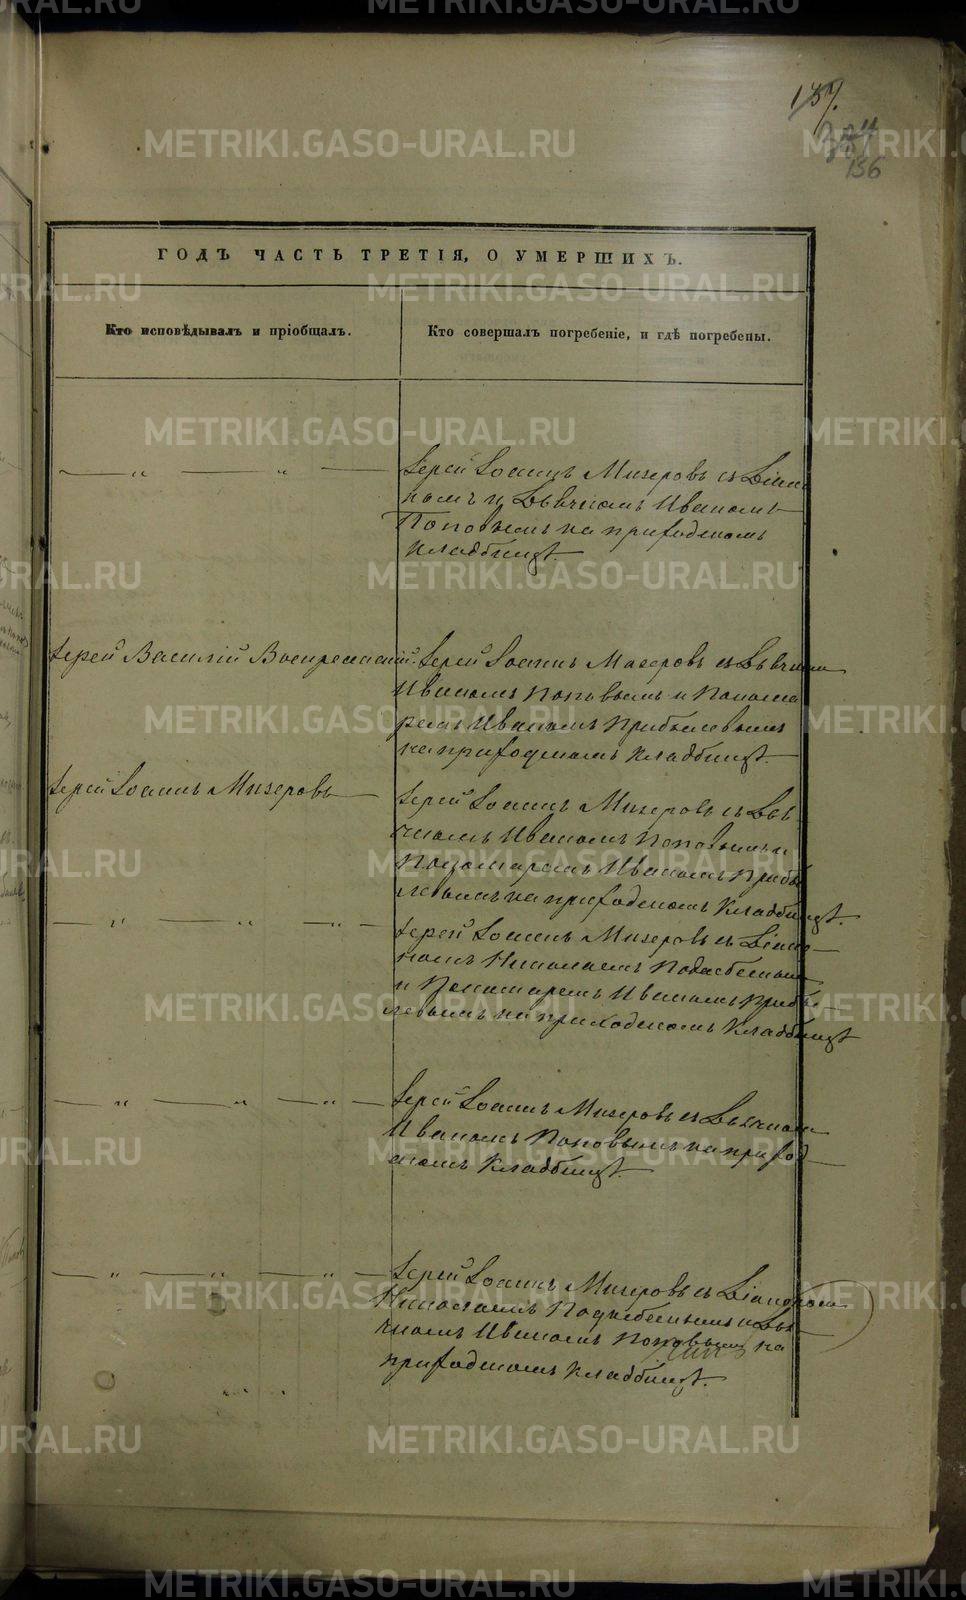 137.
156
ГОДЪ ЧАСТЬ ТРЕТІЯ, О УМЕРШИХЪ.
Кто исповѣдывалъ и пріобщалъ.
Кто совершалъ погребеніе, и гдѣ погребены.
— „ — „ —
Іерей Іоаннъ Мизеровъ съ Діако
номъ и Дьячкомъ Иваномъ
Поповымъ на приходскомъ
кладбищѣ.
Іерей Василій Воскресенскій.
Іерей Іоаннъ Мизеровъ съ Дьячкомъ
Иваномъ Поповымъ и Понома
ремъ Иваномъ Прибылевымъ
на приходскомъ кладбищѣ.
Іерей Іоаннъ Мизеровъ
Іерей Іоаннъ Мизеровъ съ Дья
чкомъ Иваномъ Поповымъ и
Пономаремъ Иваномъ Прибы
левымъ на приходскомъ кладбищѣ.
— „ — „ — „
Іерей Іоаннъ Мизеровъ съ Діако
номъ Николаемъ
и Пономаремъ Иваномъ Прибы
левымъ на приходскомъ кладбищѣ
— „ — „ — „ —
Іерей Іоаннъ Мизеровъ съ Дьячкомъ
Иваномъ Поповымъ на приход
скомъ кладбищѣ.
— „ — „ — „ —
Іерей Іоаннъ Мизеровъ съ Діакономъ
Николаемъ и Дья
чкомъ Иваномъ Поповымъ на
приходскомъ кладбищѣ.
METRIKI.GASO-URAL.RU